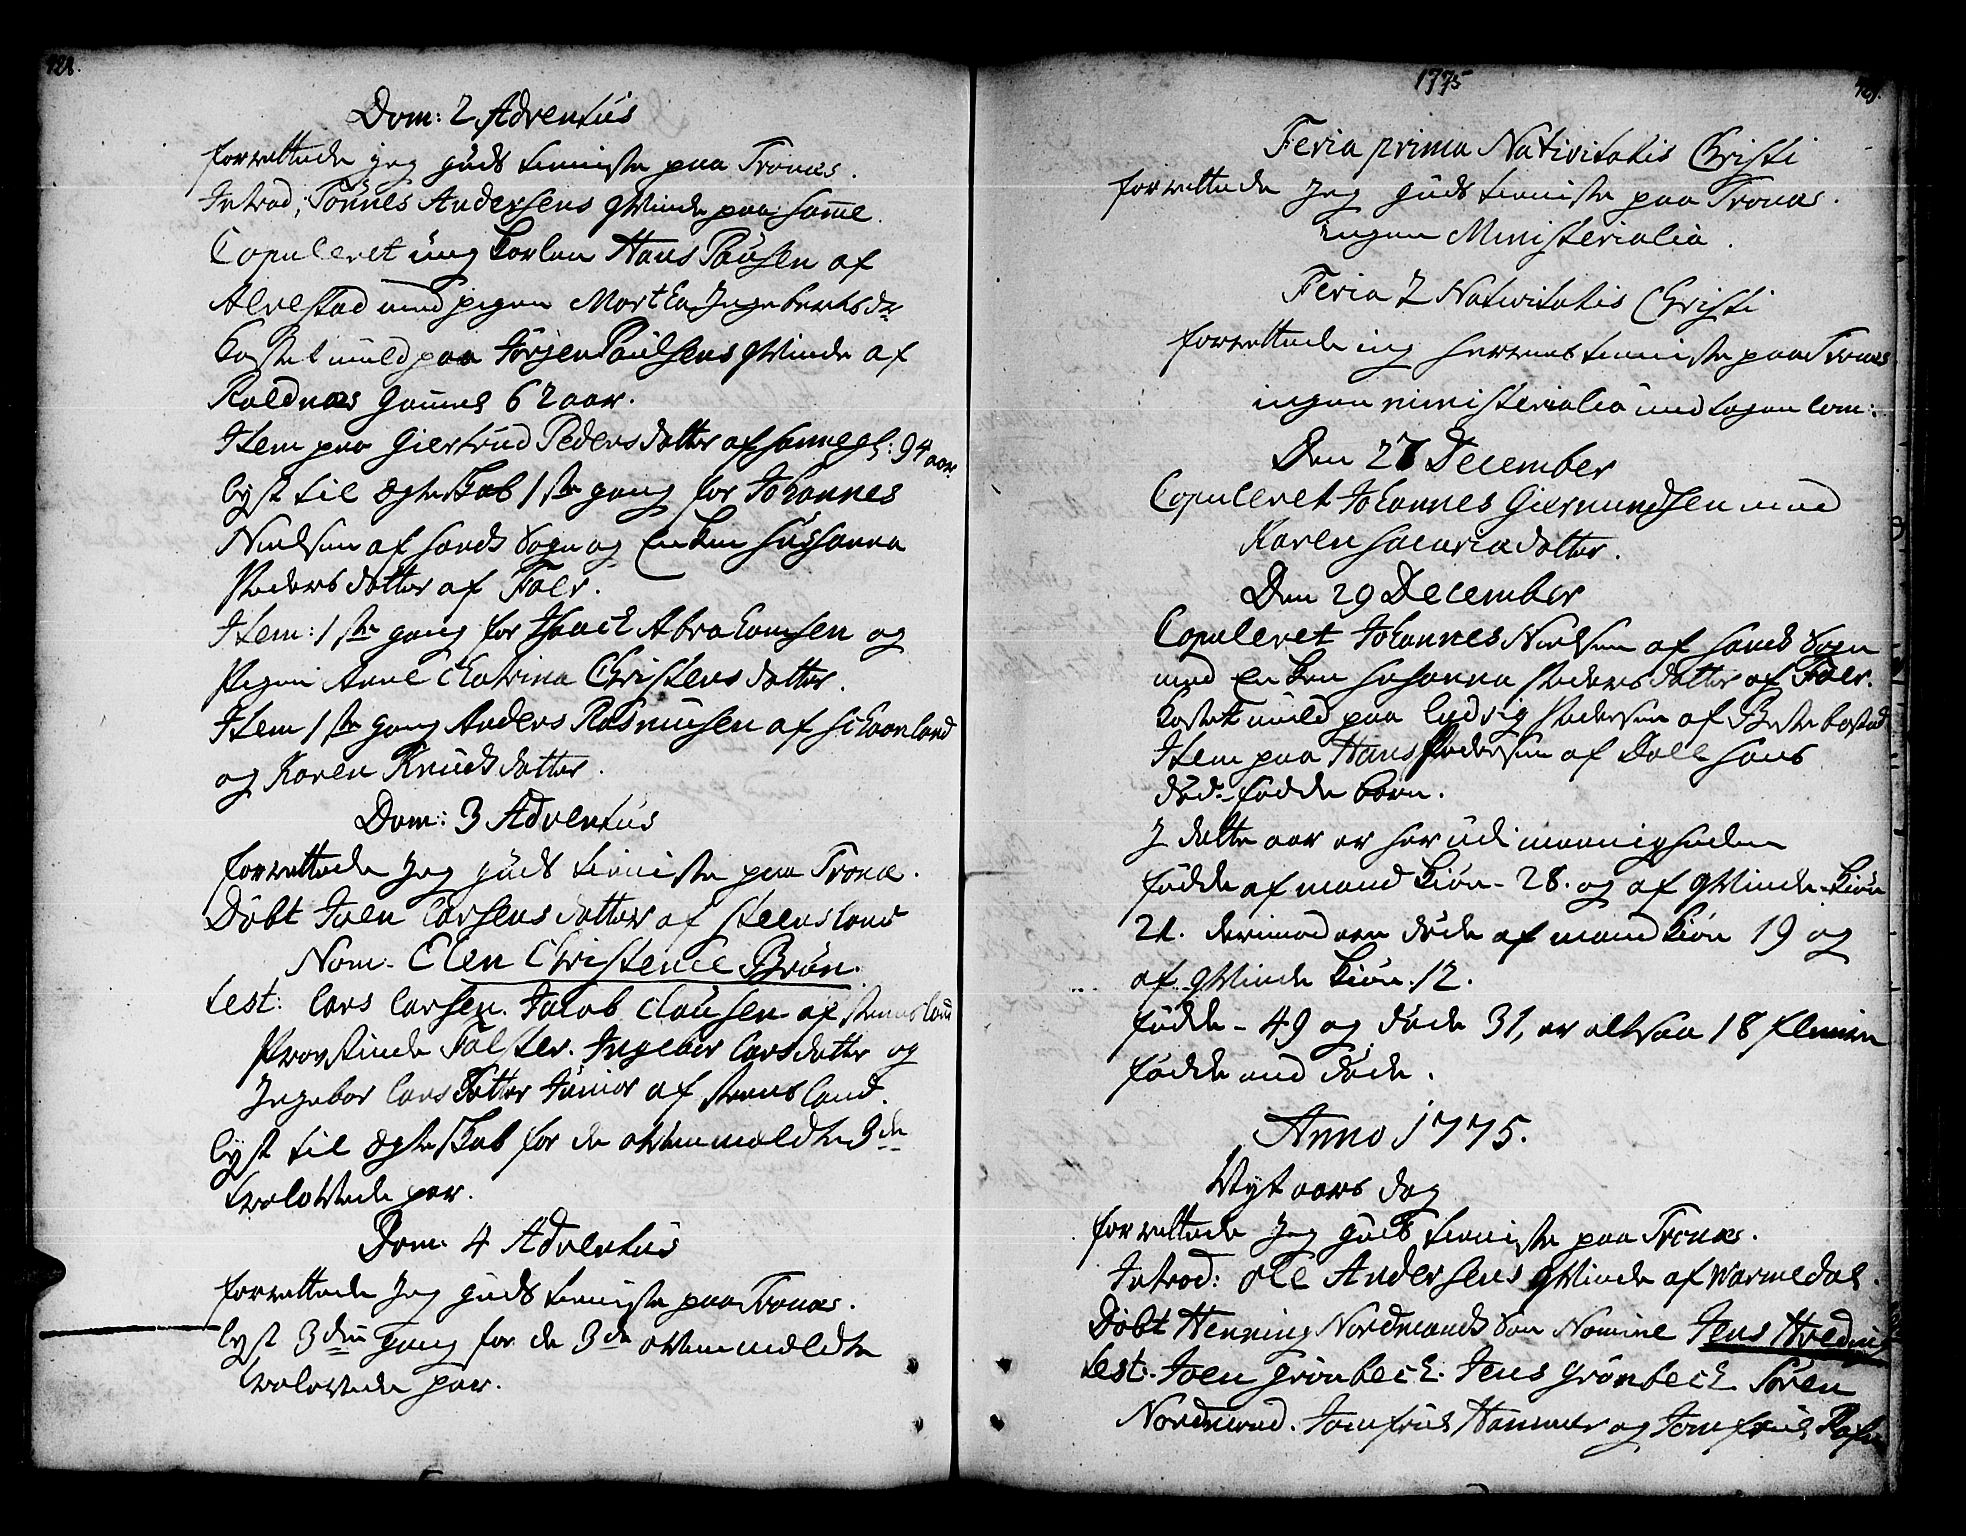 128.
Dom: 2 Adventus
forrettede jeg guds tieniste paa Tronæs.
Introd; Tønnes Andersens qvinde paa samme.
Copuleret ung karlen Hans Paulsen af
Alvestad med pigen Martha Ingebertsdr
Kastet muld paa Jörgen Paulsens qvinde af
Roldnæs gammel 62 aar.
Item paa Giertrud Pedersdatter af samme gl: 94 aar
lyst til ægteskab 1ste gang for Johannes
Nielsen af sands Sogn og Enken Susanna
Pedersdatter af Foer.
Item: 1ste gang for Isach Abrahamsen og
Pigen Anne Chatrina Christensdatter.
Item 1ste gang Anders Rasmusen af schoonland
og Karen Knudsdatter.
Dom: 3 Adventus
forrettede Jeg guds tieniste paa Tronæ.
Döbt Joen Larsens datter af steensland
Nom. Elen Christence Brön.
test: Lars Larsen. Jacob Clausen af steensland
Provstinde Falster. Ingebor Larsdatter og
Ingebor Larsdatter Junior af steensland.
lyst til ægteskab for de ovenmeldte 3de
trolovede par.
Dom. 4 Adventus
forrettede Jeg guds tieniste paa Tronæs.
lyst 3die gang for de 3de ovenmeldte
trolovede par.
1775
129.
Feria prima Nativitatis Christi
forrettede Jeg guds tieniste paa Tronæs.
ingen Ministerialia.
Feria 2 Nativitatis Christi
forrettede ieg herrens tieniste paa Tronæs
ingen ministerialia undtagen com:
Den 27 December
Copuleret Johannes Giermundsen med
Karen sacariadatter.
Den 29 December
Copuleret Johannes Nielsen af sands Sogn
med Enken susanna Pedersdatter af Foer.
kastet muld paa Ludvig Pedersen af Bestebostad
Item paa Hans Pedersen af Dale hans
död-födde barn.
I dette aar er her udi meenigheden
födde af mand kiön - 28. og af qvinde-kiön
21. derimod ere döde af mand kiön 19 og
af qvinde kiön 12.
födde - 49 og döde 31, er altsaa 18 flere
födde end döde.
Anno 1775.
Nyt aars dag
forrettede Jeg guds tieniste paa Tronæs.
Introd: Ole Andersens qvinde af Warmedal.
Döbt Henning Nordmands Sön Nomine Jens Hvedni
test: Joen Grönbech. Jens Grönbech Sören
Nordmand. Jomfrue Hammer og Jomfrue